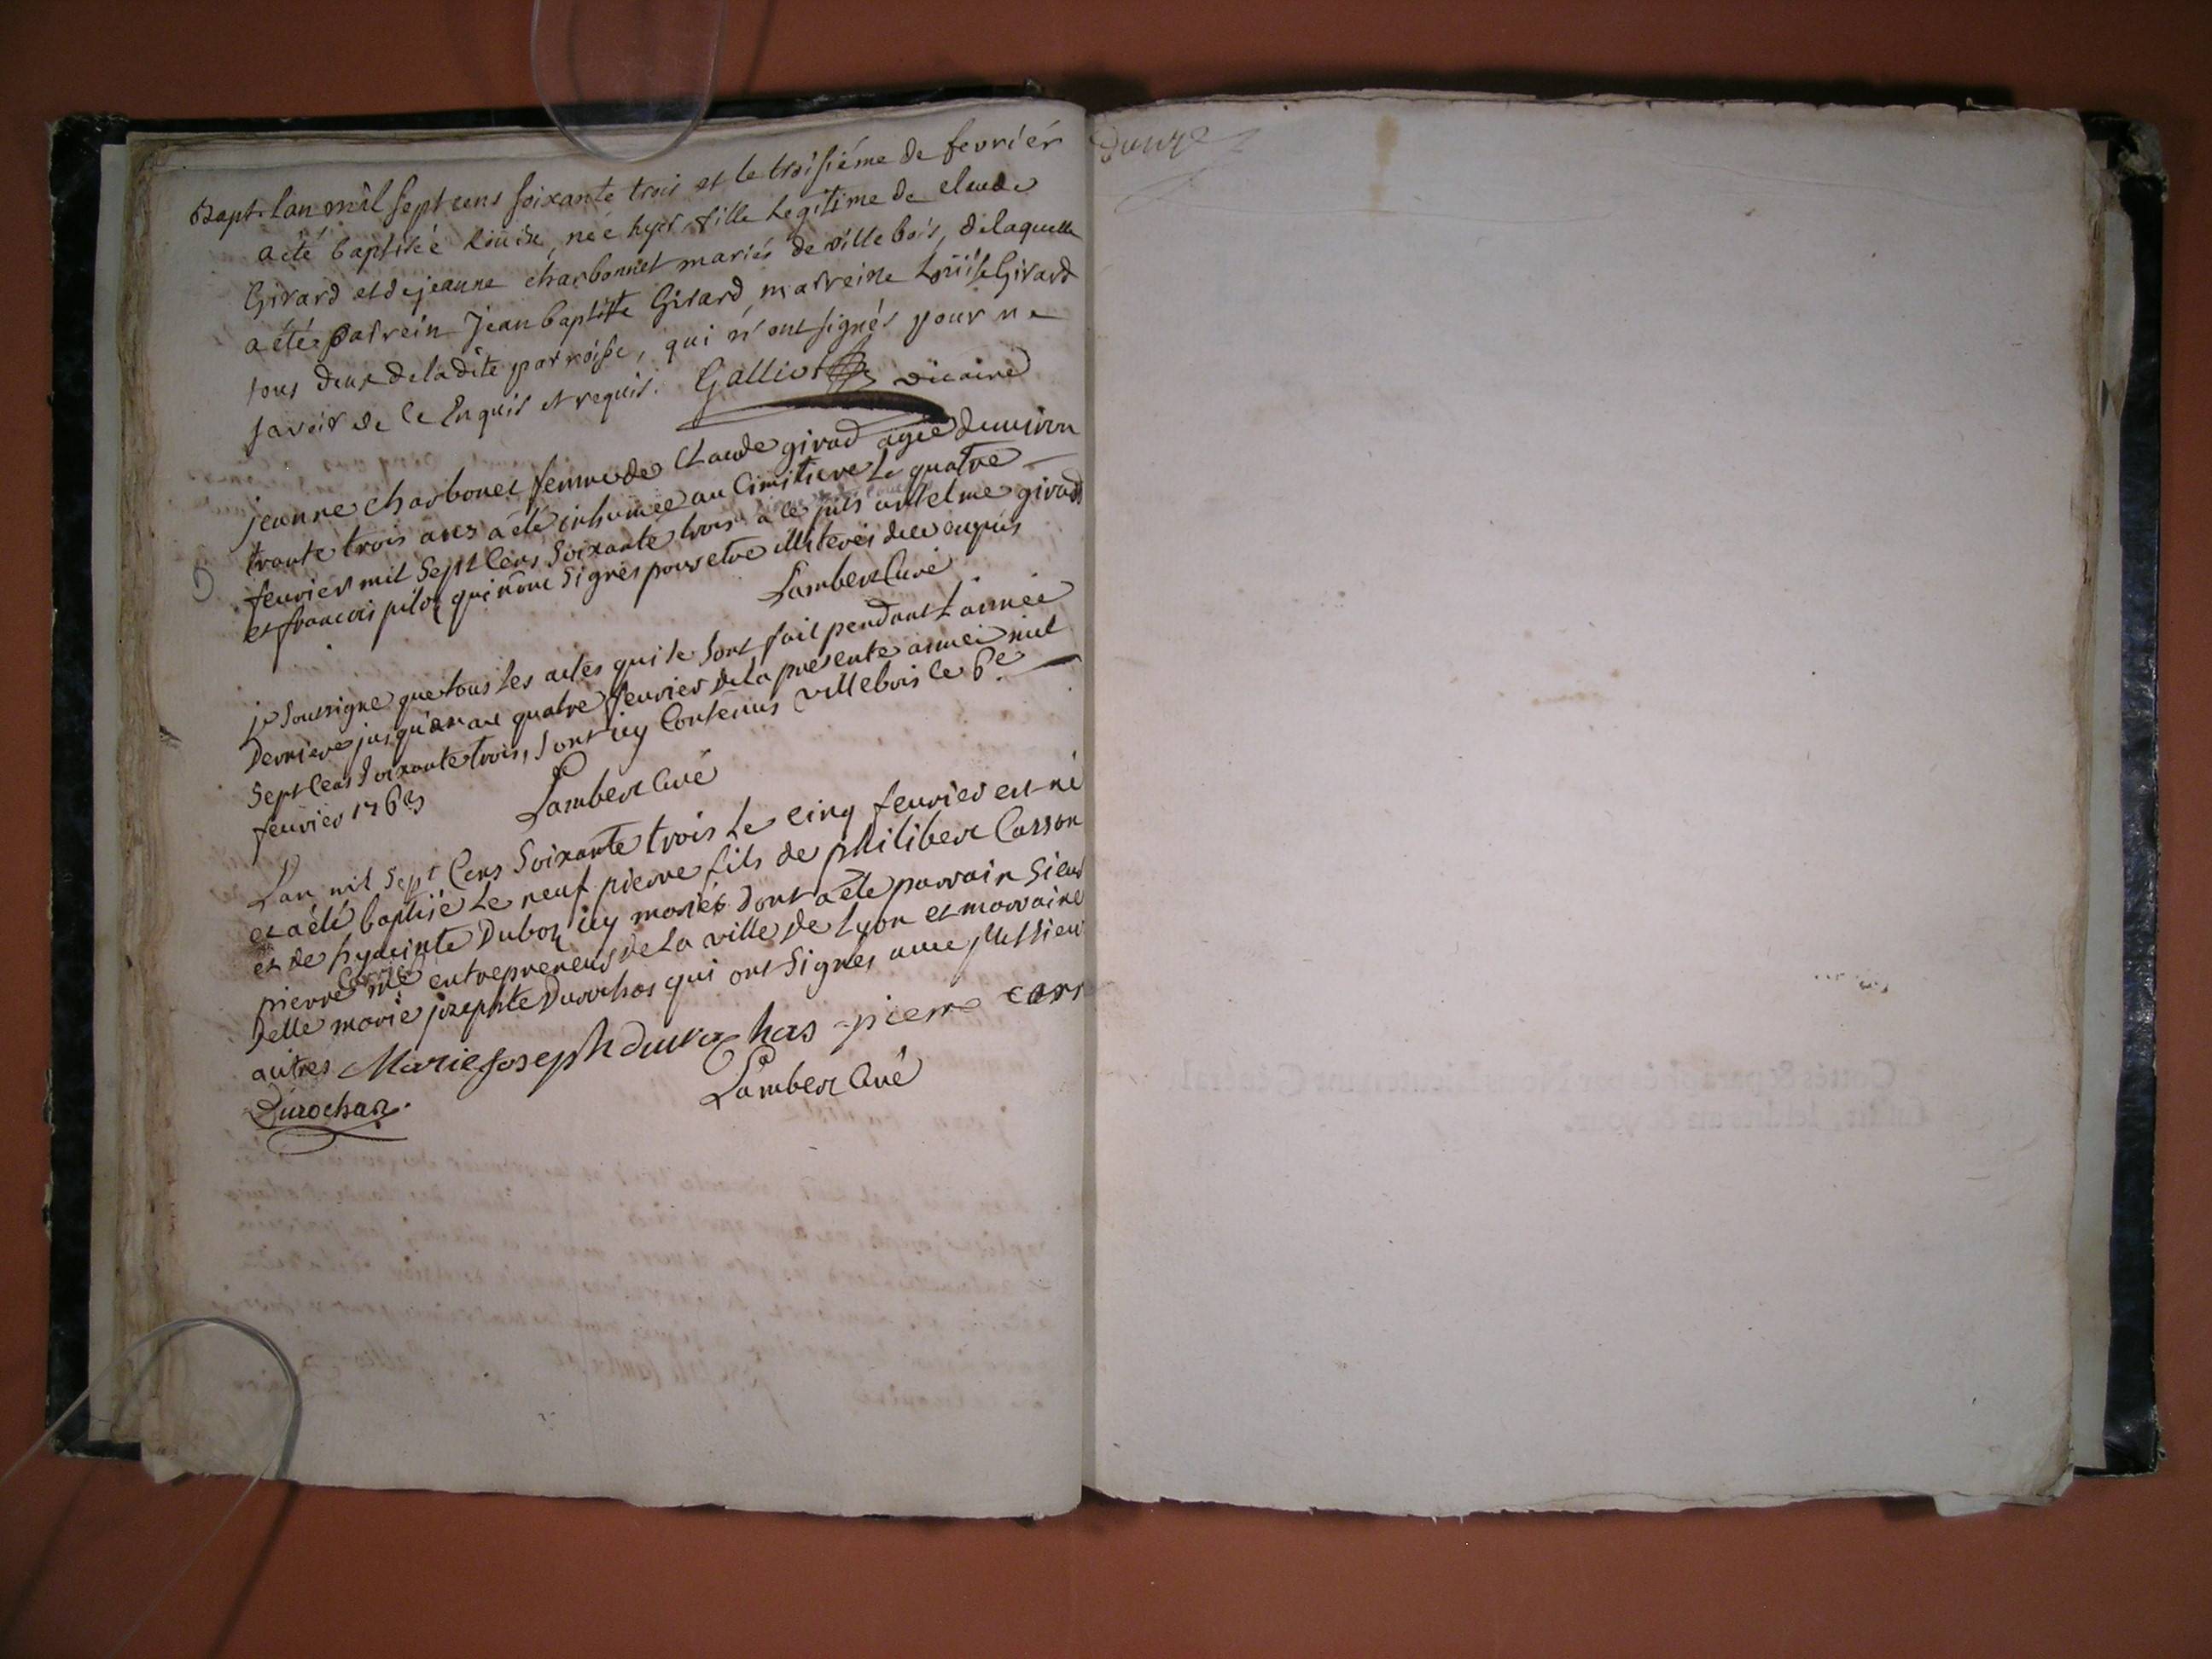 Bapt. Lan mil sept cens soixante trois et le troisiéme de fevrier
a été baptisée Loüise, née hyer, fille Legitime de claude
Girard et de jeanne charbonnet mariés de villebois, de laquelle
a été parrein Jean baptiste Girard, marreine Loüise Girard
tous deux de la dite parroisse, qui n'ont signés pour ne
savoir de ce Enquis et requis. Galliot vicaire
jeanne charbonet femme de Claude girad agée denuiron
trante trois ans a été inhumée au Cimitiere Le quatre
feurier mil Sept Cens Soixante trois a ce pnts antelme girad
et francois pilot qui n'ont Signés pour etre illiterés de ce enquis
Lambert Curé
je soussigne que tous Les actes qui se Sont fait pendant L'année
Derniere jusqu'au quatre feurier de La presente année mil
Sept Cens Soixante trois, Sont icy Contenus villebois le 6e
feurier 1763
Lambert Curé
L'an mil Sept Cens Soixante trois Le cinq feurier est né
et a été baptisé Le neuf pierre fils de philibert Carron
et de hyacinte Dubois icy mariés dont a été parrain Sieur
pierre entrepreneur de La ville de Lyon et marraine
Delle marie josephte Durochas qui ont Signés auec plussieur
autres Marie Joseph durochas pierre carr
Durochas.
Lambert Curé